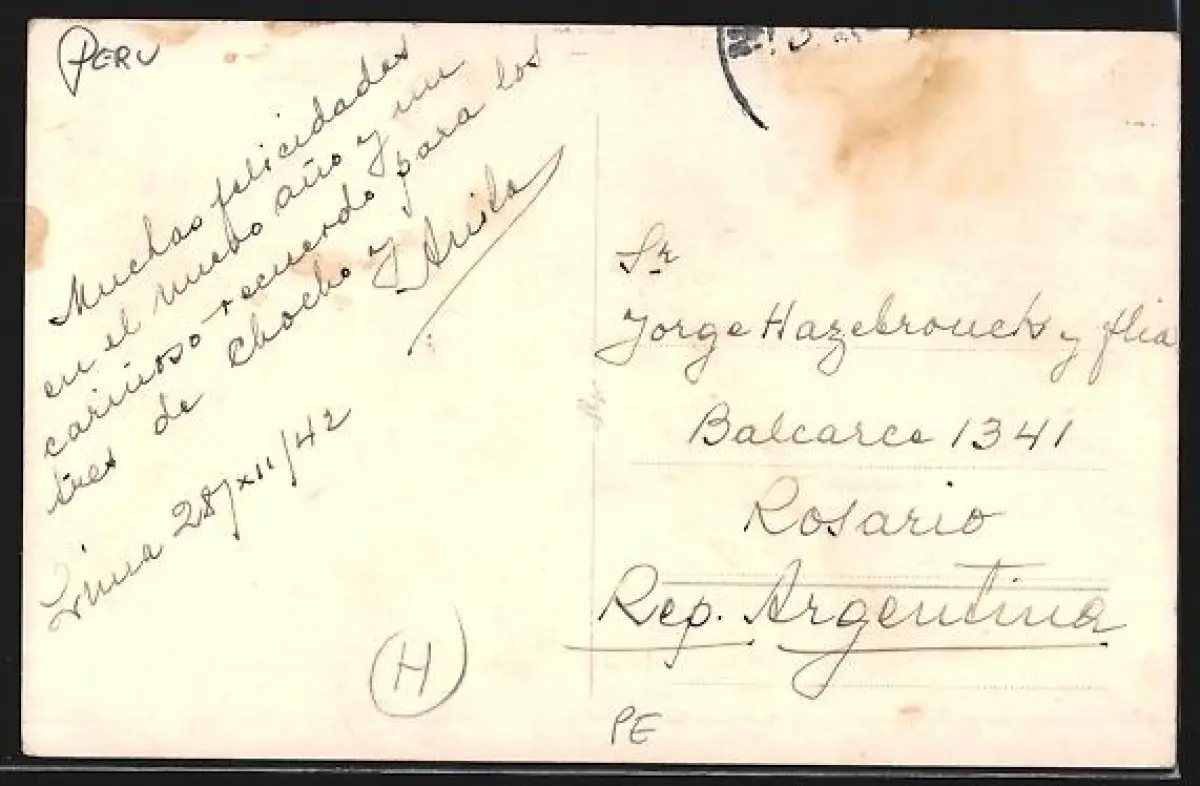 PERU
Muchas felicidades
en el nuevo año y un
cariñoso recuerdo para los
tres de Chocho y Avila
Lima 28/XII/42
H
Sr
Jorge Hazebrouck y flia
Balcarce 1341
Rosario
Rep. Argentina
PE